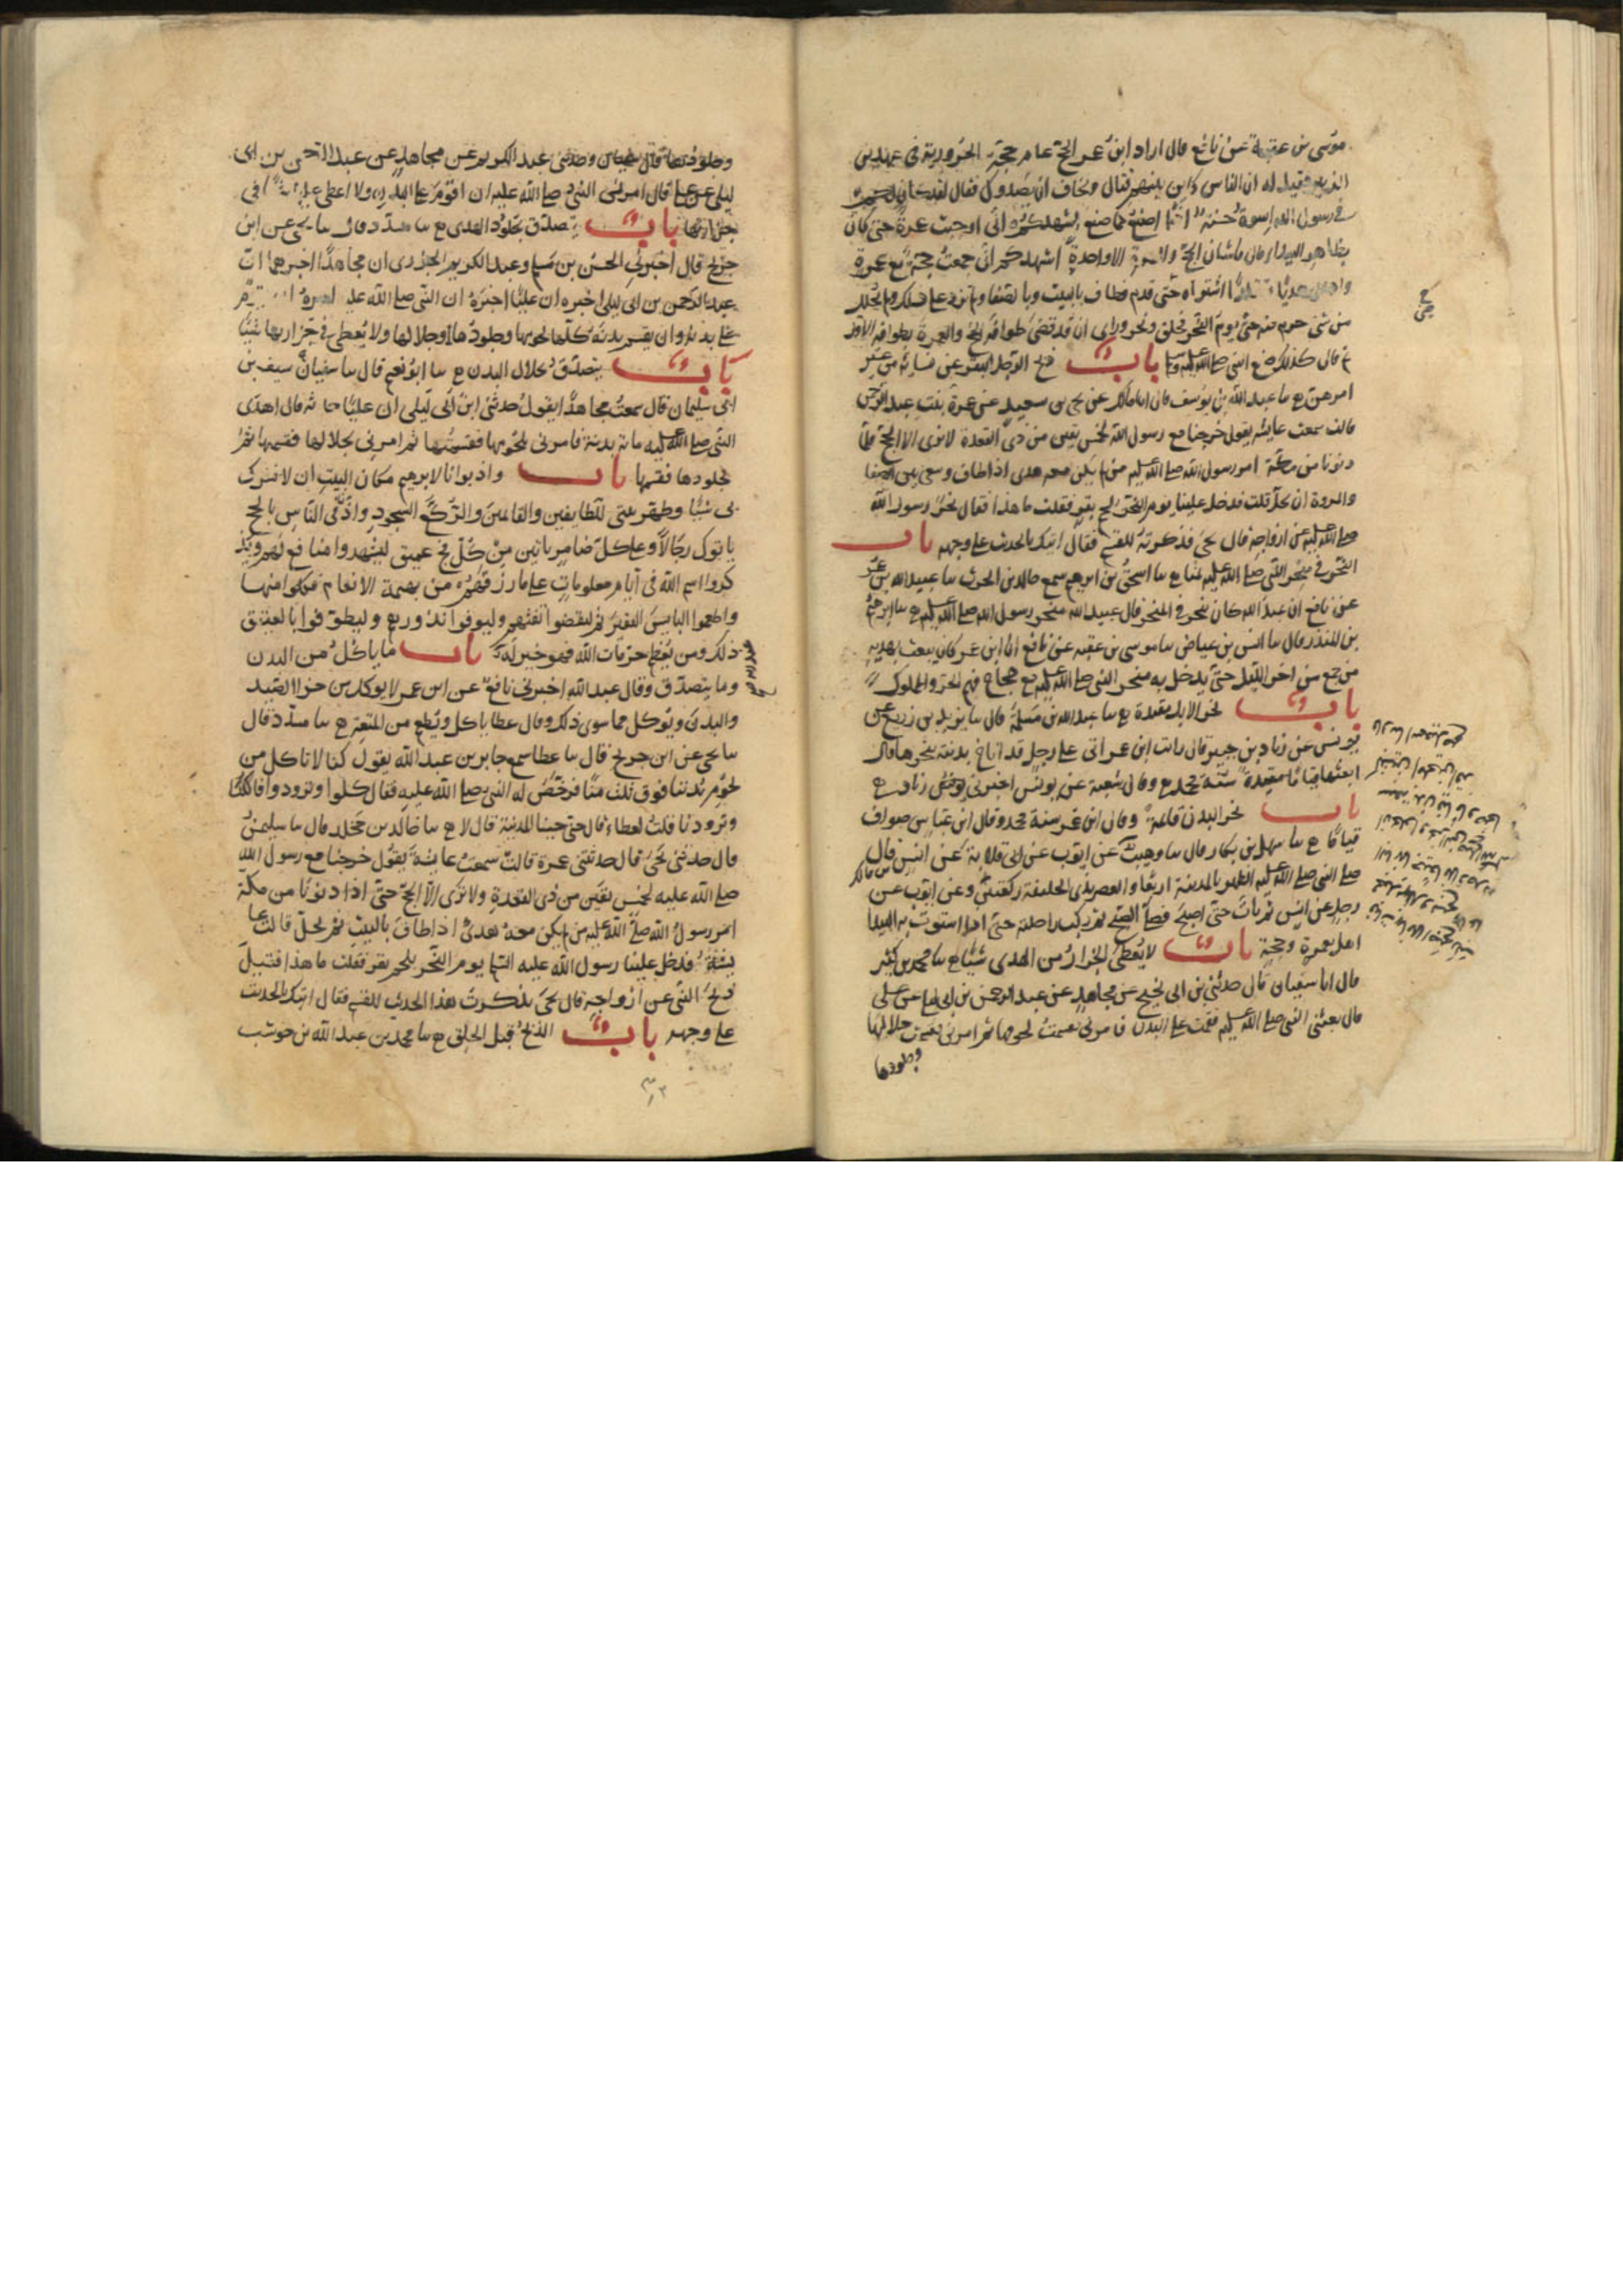 موسى بن عقبة عن نافع قال اراد ابن عمر الحج عام حجة الحرورية في عهد بن
الزبير فقيل له ان الناس كاين بينهم قتال ونخاف ان يصدوك فقال لقد كان لكم
في رسول الله اسوة حسنة اذا اصنع كما صنع اشهدكم اني اوجبت عمرة حتى كان
بظاهر البيداء قال ما شان الحج والعمرة الا واحدة اشهدكم اني جمعت حجة مع عمرة
واهدى هديا مقلدا اشتراه حتى قدم فطاف بالبيت وبالصفا ولم يزد على ذلك ولم يحلل
من شي حرم منه حتى يوم النحر فحلق ونحر وراى ان قد قضى طوافه الحج والعمرة بطوافه الاول
ثم قال كذلك صنع النبي صلى الله عليه وسلم باب ذبح الرجل البقر عن نسائه من غير
امرهن ح سا عبد الله بن يوسف قال انا مالك عن يحيى بن سعيد عن عمرة بنت عبد الرحمن
قالت سمعت عايشه يقول خرجنا مع رسول الله لخمس بقين من ذي القعدة لا نرى الا الحج فلما
دنونا من مكة امر رسول الله صلى الله عليه من لم يكن معه هدى اذا طاف وسعى بين الصفا
والمروة ان يحل قلت فدخل علينا يوم النحر بلحم بقر فقلت ما هذا فقال نحر رسول الله
صلى الله عليه عن ازواجه قال يحيى فذكرته للقسم فقال اتتك بالحديث على وجهه باب
النحر في منحر النبي صلى الله عليه بمنا ح سا اسحق بن ابرهيم سمع خالد بن الحرث سا عبيد الله بن عمر
عن نافع ان عبد الله كان ينحر في المنحر قال عبيد الله منحر رسول الله صلى الله عليه ح سا ابرهيم
بن المنذر قال سا انس بن عياض سا موسى بن عقبه عن نافع ان ابن عمر كان يبعث بهديه
من جمع من اخر الليل حتى يدخل به منحر النبي صلى الله عليه مع حجاج فيهم الحر والمملوك
باب نحر الابل مقيدة ح سا عبد الله بن مسلمة قال سا يزيد بن زريع عن
يونس عن زياد بن جبير قال رايت ابن عمر اتى على رجل قد اناخ بدنته ينحرها قال
ابعثها قياما مقيدة سنة محمد ح وقال شعبة عن يونس اخبرني زياد ح
باب نحر البدن قائمة وقال ابن عمر سنة محمد وقال ابن عباس صواف
قياما ح سا سهل بن بكار قال سا وهيب عن ايوب عن ابي قلابة عن انس قال
صلى النبي صلى الله عليه الظهر بالمدينة اربعا والعصر بذي الحليفة ركعتين وعن ايوب عن
رجل عن انس ثم بات حتى اصبح فصلى الصبح ثم ركب راحلته حتى اذا استوت به البيدا
اهل بعمرة وحجة باب لا يعطى الجزار من الهدى شيئا ح سا محمد بن كثير
قال انا سفيان قال حدثني بن ابي نجيح عن مجاهد عن عبد الرحمن بن ابي ليلى عن على
قال بعثني النبي صلى الله عليه فقمت على البدن فامرني فقسمت لحومها ثم امرني فقسمت جلالها
وجلودها
وجلودها قال سفيان وحدثني عبد الكريم عن مجاهد عن عبد الرحمن بن ابي
ليلى عن على قال امرني النبي صلى الله عليه ان اقوم على البدن ولا اعطى عليها شيئا في
جزارتها باب يتصدق بجلود الهدى ح سا مسدد قال سا يحيى عن ابن
جريج قال اخبرني الحسن بن مسلم وعبد الكريم الجزري ان مجاهدا اخبرهما ان
عبد الرحمن بن ابي ليلى اخبره ان عليا اخبره ان النبي صلى الله عليه امره ان يقوم
على بدنه وان يقسم بدنه كلها لحومها وجلودها وجلالها ولا يعطى في جزارتها شيئا
باب يتصدق بجلال البدن ح سا ابو نعيم قال سا سفيان سيف بن
ابي سليمان قال سمعت مجاهدا يقول حدثني ابن ابي ليلى ان عليا حدثه قال اهدى
النبي صلى الله عليه مائة بدنة فامرني بلحومها فقسمتها ثم امرني بجلالها فقسمها ثم
بجلودها فقسمها باب واذ بوانا لابرهيم مكان البيت ان لا تشرك
بي شيئا وطهر بيتي للطايفين والقائمين والركع السجود واذن في الناس بالحج
ياتوك رجالا وعلى كل ضامر ياتين من كل فج عميق ليشهدوا منافع لهم ويذ
كروا اسم الله في ايام معلومات على ما رزقهم من بهيمة الانعام فكلوا منها
واطعموا البايس الفقير ثم ليقضوا تفثهم وليوفوا نذورهم وليطوفوا بالبيت العتيق
ذلك ومن يعظم حرمات الله فهو خير له باب ما ياكل من البدن
وما يتصدق وقال عبد الله اخبرني نافع عن ابن عمر لا يوكل من جزا الصيد
والبدن ويوكل مما سوى ذلك وقال عطا ياكل ويطعم من المتعة ح سا مسدد قال
سا يحيى عن ابن جريج قال سا عطا سمع جابر بن عبد الله يقول كنا لا ناكل من
لحوم بدننا فوق ثلث منا فرخص له النبي صلى الله عليه فقال كلوا وتزودوا فاكلنا
وتزودنا قلت لعطاء قال حتى جينا المدينة قال لا ح سا خالد بن مخلد قال سا سليمن
قال حدثني يحيى قال حدثتني عمرة قالت سمعت عايشة يقول خرجنا مع رسول الله
صلى الله عليه لخمس بقين من ذي القعدة ولا نرى الا الحج حتى اذا دنونا من مكة
امر رسول الله صلى الله عليه من لم يكن معه هدى اذا طاف بالبيت ثم يحل قالت عا
يشة فدخل علينا رسول الله عليه يوم النحر بلحم بقر فقلت ما هذا فقيل
ذبح النبي عن ازواجه قال يحيى فذكرت هذا الحديث للقسم فقال اتتك بالحديث
على وجهه باب الذبح قبل الحلق ح سا محمد بن عبد الله بن حوشب